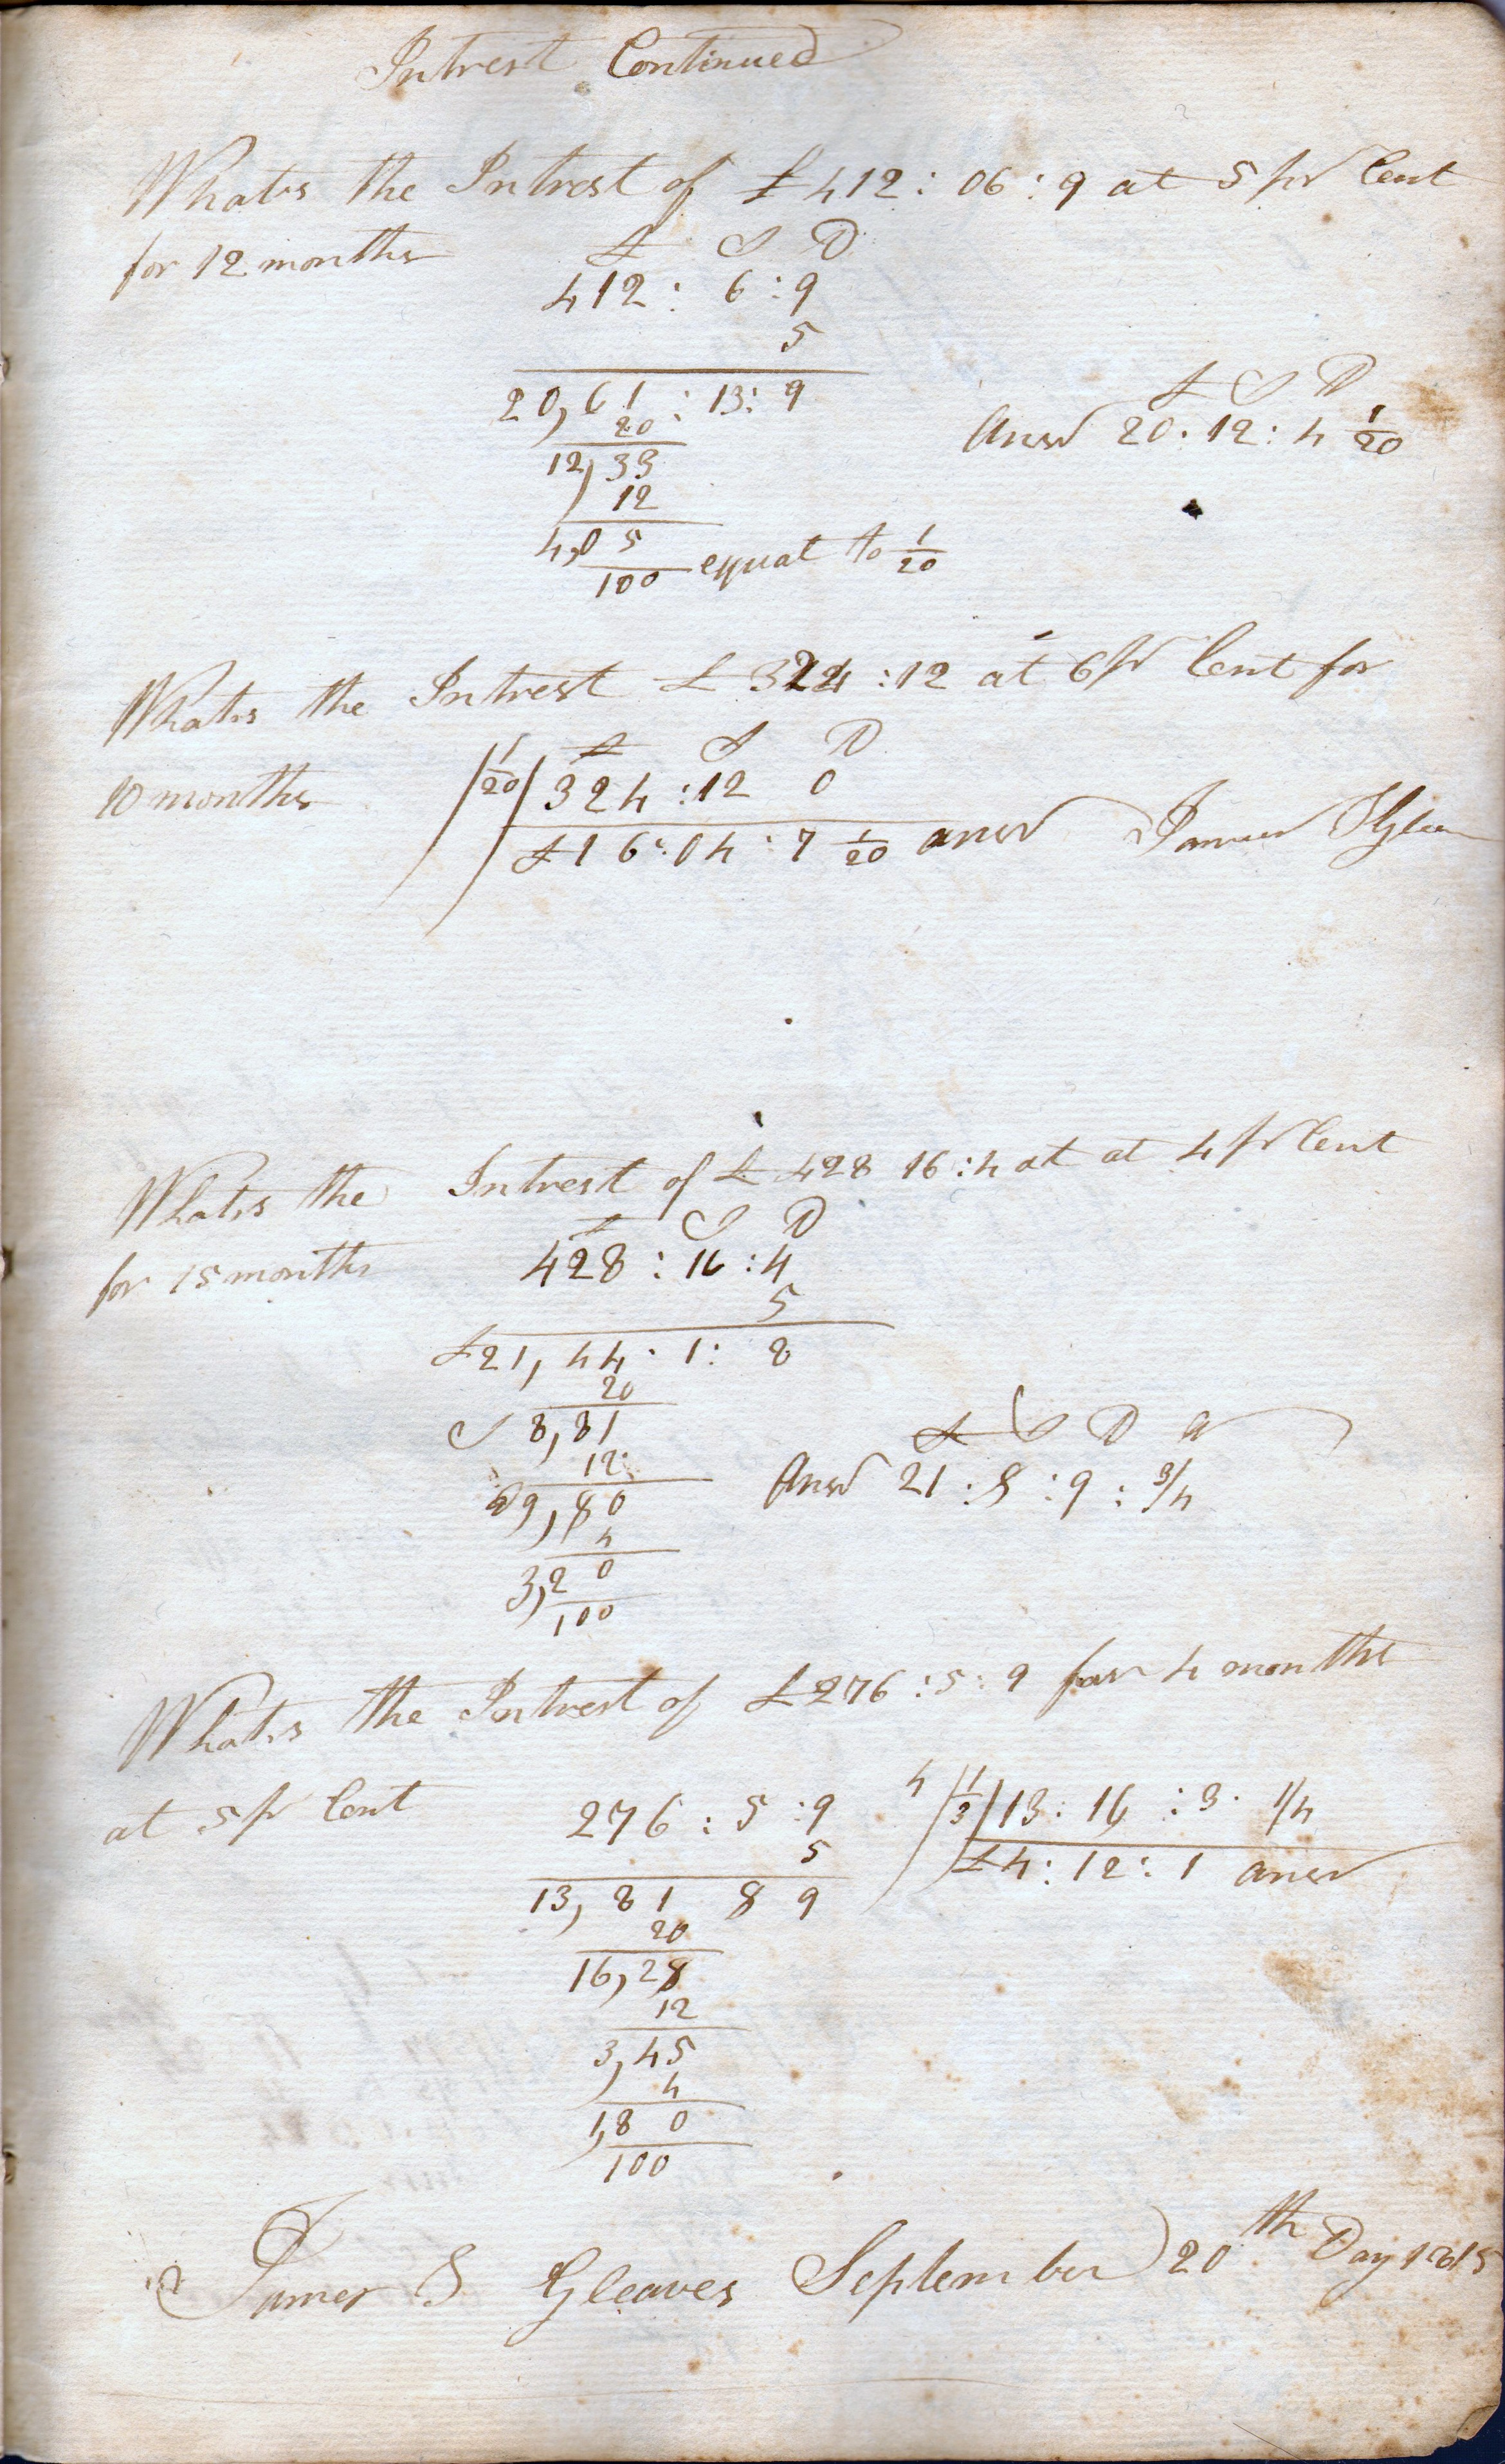 Intrest Continued
What's the Intrest of £412 : 06 : 9 at 5 pr Cent
for 12 months
£ S D
412 : 6 : 9
5
20,61 : 13 : 9
20
12,33
12
4,05
100 equal to 1/20
£ S D
Answ 20 . 12 : 4 1/20
What's the Intrest £ 324 : 12 at 6 pr Cent for
10 months
£ S D
1/20 324 : 12 0
£16 : 04 : 7 1/20 answ James S Glea
What's the Intrest of £ 428 16 : 4 at at 4 pr Cent
for 15 months
£ S D
428 : 16 : 4
5
£21, 44 . 1 : 8
20
S 8,81
12
D 9,80
4
3,20
100
£ S D q
Answ 21 : 8 : 9 : 3/4
What's the Intrest of £276 : 5 : 9 for 4 months
at 5 pr Cent
276 : 5 : 9
5
13, 81 8 9
20
16,28
12
3,45
4
1,80
100
4 1/3 13 : 16 : 3 . 1/4
£4 : 12 : 1 answ
James S Gleaves September 20th Day 1815